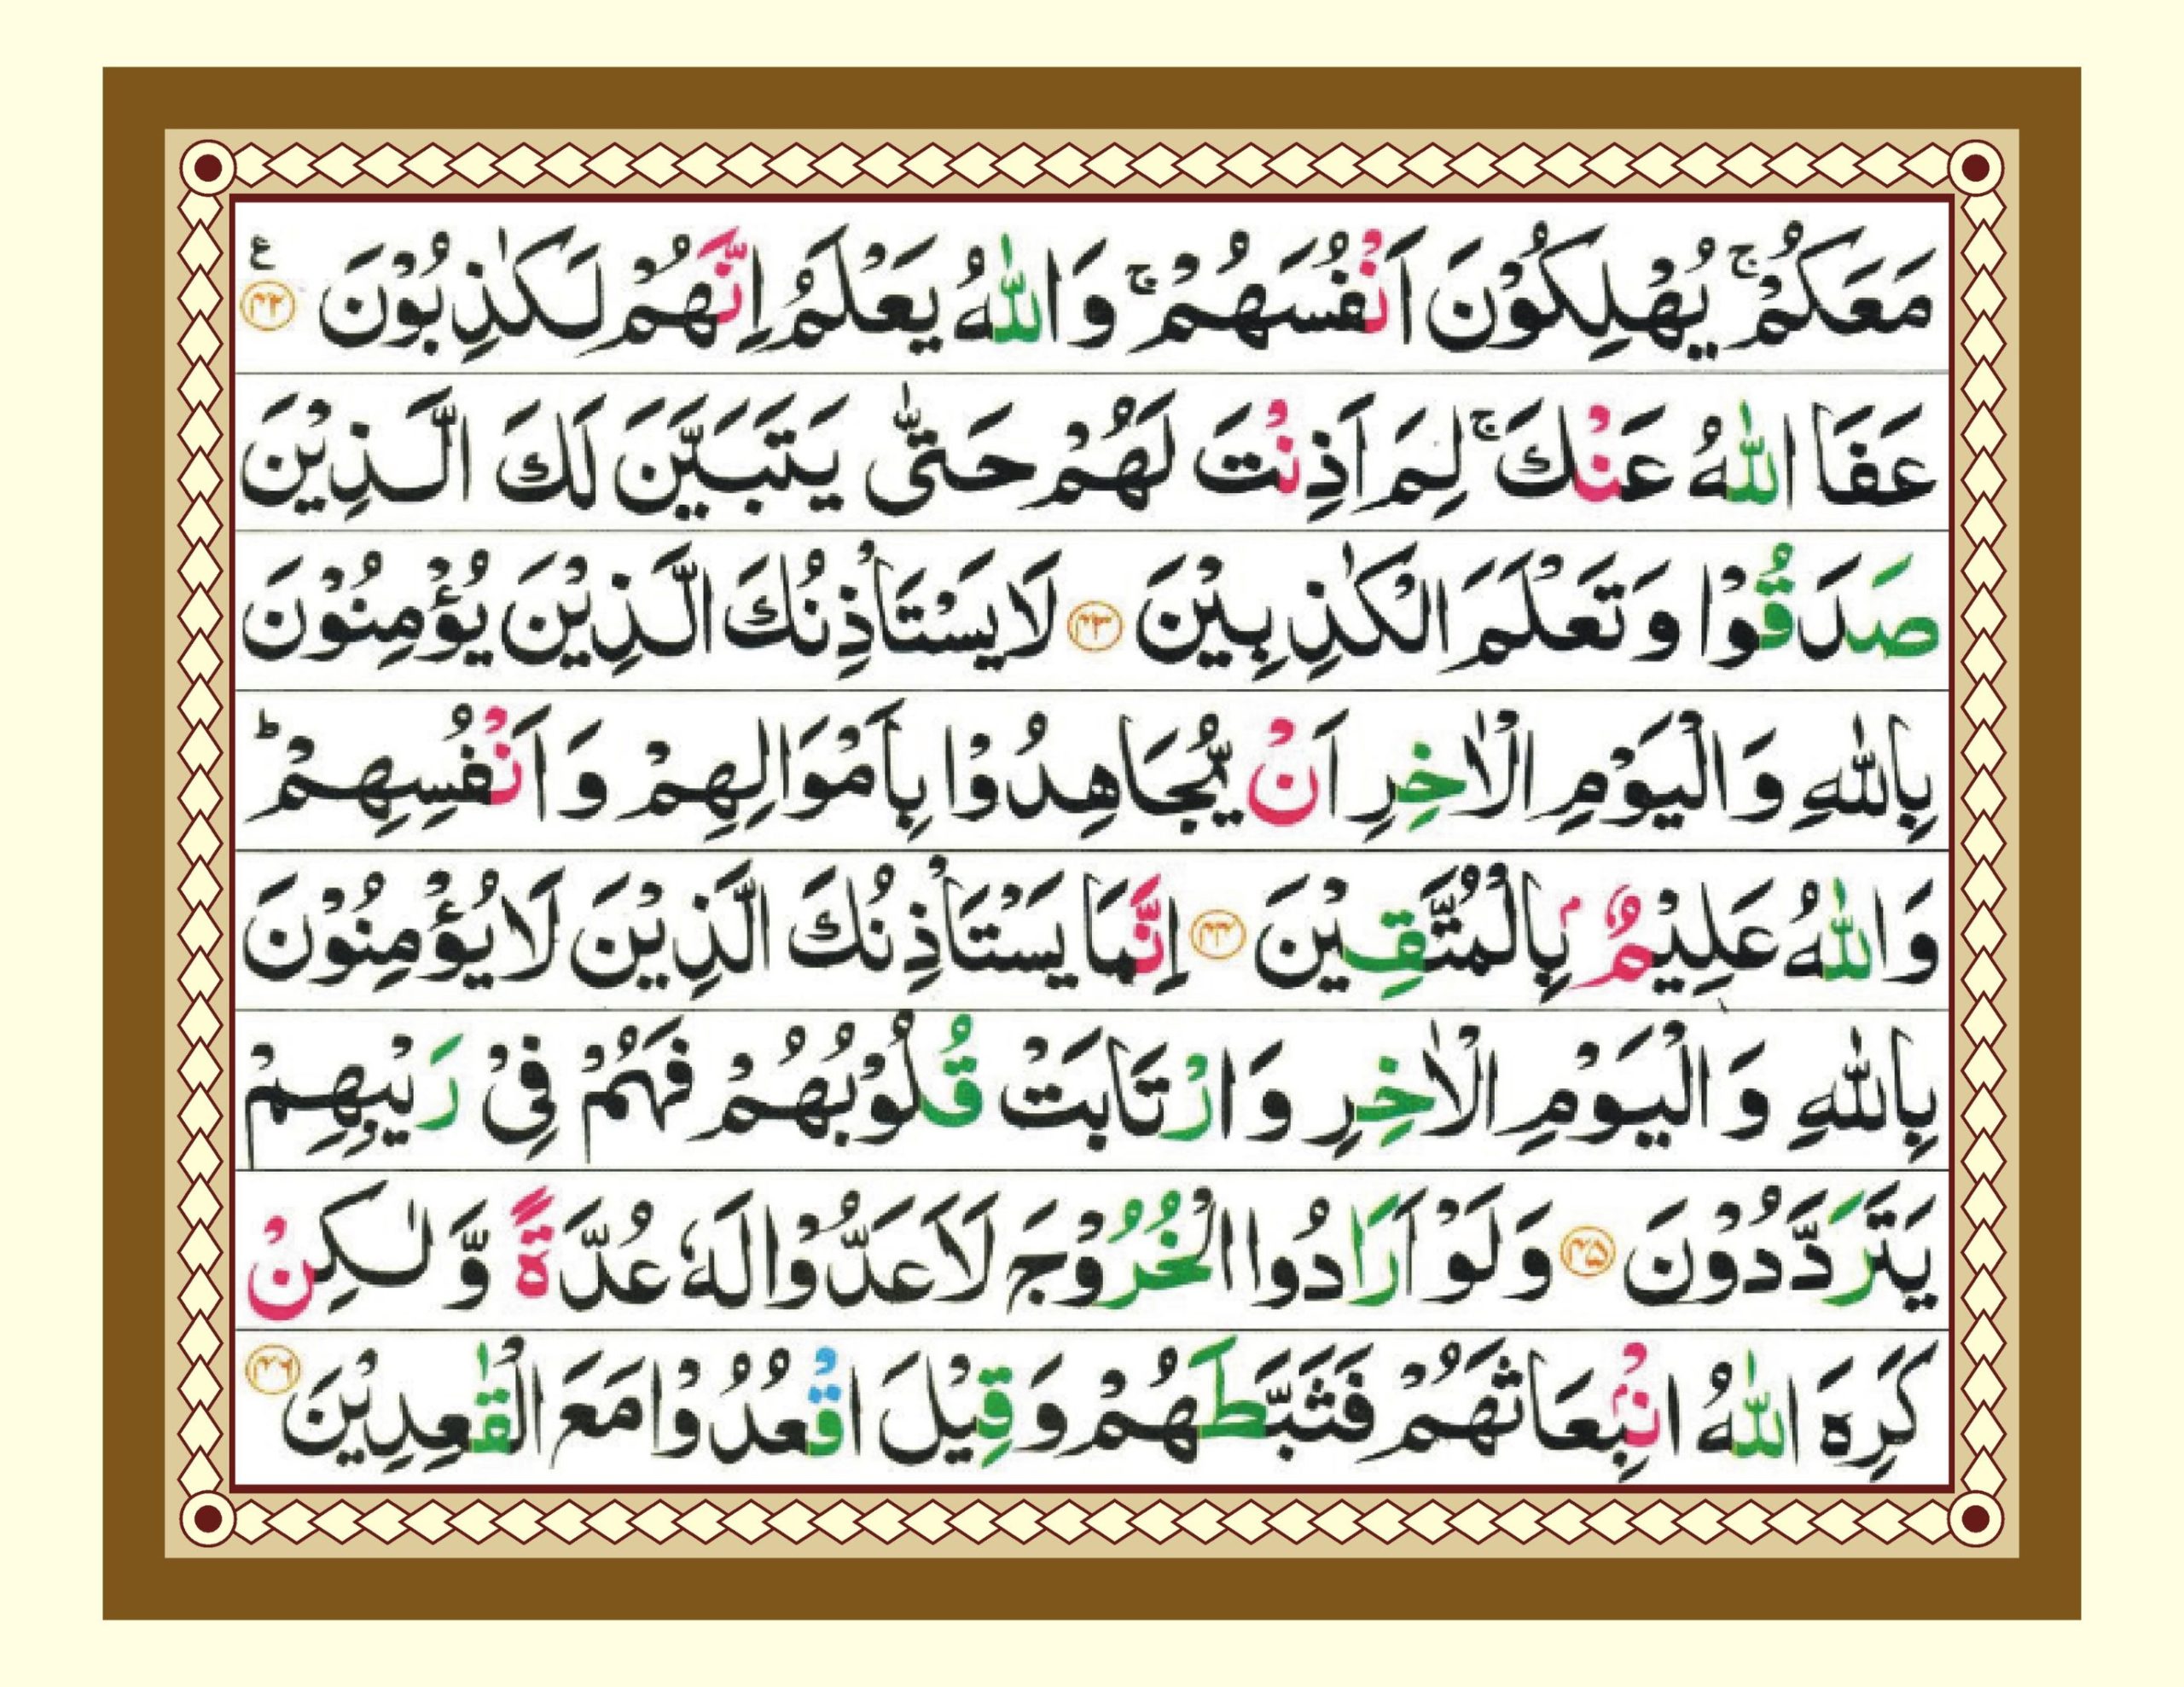 مَعَكُمْ ۚ يُهْلِكُوْنَ اَنْفُسَهُمْ ۚ وَاللّٰهُ يَعْلَمُ اِنَّهُمْ لَكٰذِبُوْنَ ۴۲ ع
عَفَا اللّٰهُ عَنْكَ ۚ لِمَ اَذِنْتَ لَهُمْ حَتّٰى يَتَبَيَّنَ لَكَ الَّذِيْنَ
صَدَقُوْا وَتَعْلَمَ الْكٰذِبِيْنَ ۴۳ لَا يَسْتَاْذِنُكَ الَّذِيْنَ يُؤْمِنُوْنَ
بِاللّٰهِ وَالْيَوْمِ الْاٰخِرِ اَنْ يُّجَاهِدُوْا بِاَمْوَالِهِمْ وَاَنْفُسِهِمْ ؕ
وَاللّٰهُ عَلِيْمٌۢ بِالْمُتَّقِيْنَ ۴۴ اِنَّمَا يَسْتَاْذِنُكَ الَّذِيْنَ لَا يُؤْمِنُوْنَ
بِاللّٰهِ وَالْيَوْمِ الْاٰخِرِ وَارْتَابَتْ قُلُوْبُهُمْ فَهُمْ فِىْ رَيْبِهِمْ
يَتَرَدَّدُوْنَ ۴۵ وَلَوْ اَرَادُوا الْخُرُوْجَ لَاَعَدُّوْا لَهٗ عُدَّةً وَّلٰكِنْ
كَرِهَ اللّٰهُ انْۢبِعَاثَهُمْ فَثَبَّطَهُمْ وَقِيْلَ اقْعُدُوْا مَعَ الْقٰعِدِيْنَ ۴۶